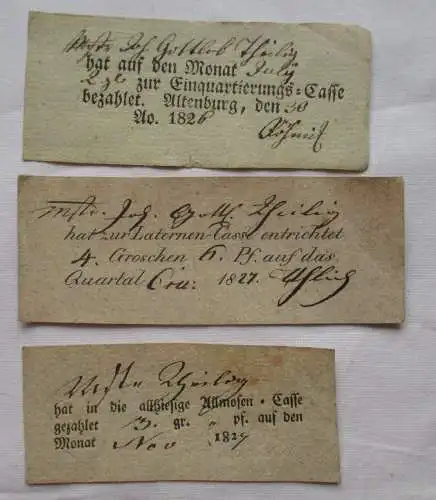 Mstr. Joh. Gottlob Theilig
hat auf den Monat July
2 gl zur Einquartierungs-Casse
bezahlet. Altenburg, den 30
Ao. 1826
Mstr. Joh. Gottl. Theilig
hat zur Laternen-Casse entrichtet
4. Groschen 6. Pf. auf das
Quartal Cru: 1827.
Mstr Theilig
hat in die allhiesige Allmosen-Casse
gezahlet 3. gr. „ pf. auf den
Monat Nov 1827